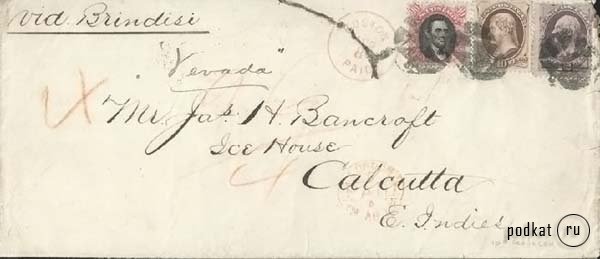 via Brindisi
BOSTON
PAID
"Nevada"
Mr. Jas. H. Bancroft
Ice House
Calcutta
E. Indies
podkat ru